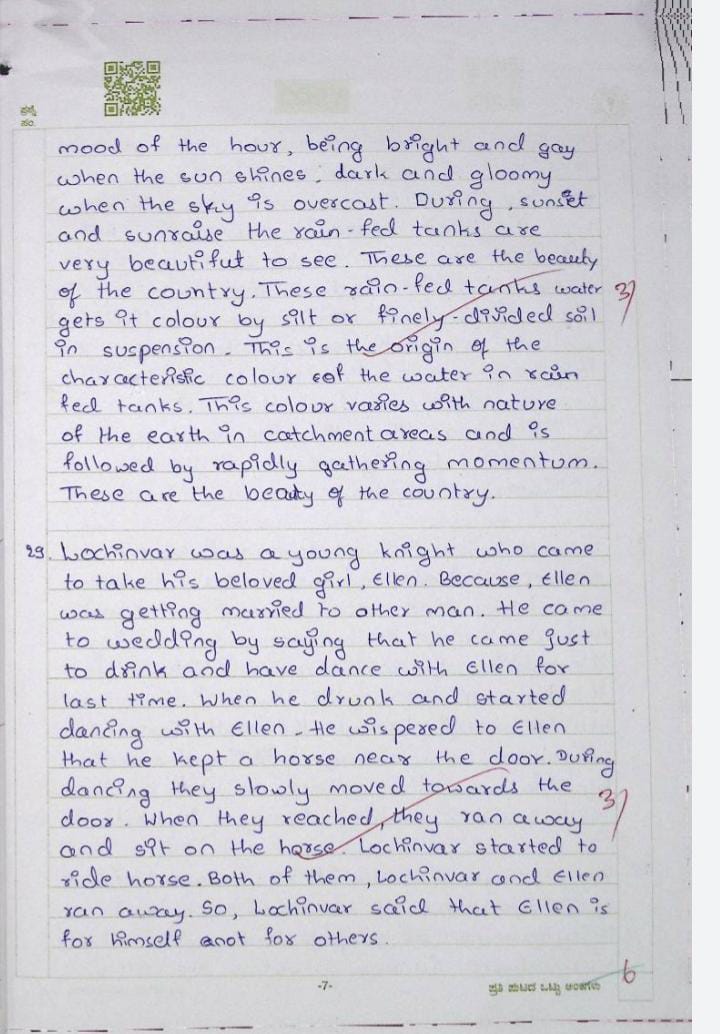 ಪ್ರಶ್ನೆ
ಸಂ.
mood of the hour, being bright and gay
when the sun shines. dark and gloomy
when the sky is overcast. During, sunset
and sunraise the rain-fed tanks are
very beautiful to see. These are the beauty
of the country. These rain-fed tanks water
3
gets it colour by silt or finely-divided soil
in suspension. This is the origin of the
characteristic colour of the water in rain
fed tanks. This colour varies with nature
of the earth in catchment areas and is
followed by rapidly gathering momentum.
These are the beauty of the country.
29. Lochinvar was a young knight who came
to take his beloved girl, Ellen. Because, Ellen
was getting married to other man. He came
to wedding by saying that he came just
to drink and have dance with Ellen for
last time. When he drunk and started
dancing with Ellen. He wispered to Ellen
that he kept a horse near the door. During
dancing they slowly moved towards the
3
door. When they reached, they ran away
and sit on the horse. Lochinvar started to
ride horse. Both of them, Lochinvar and Ellen
ran away. So, Lochinvar said that Ellen is
for himself not for others.
-7-
ಪ್ರತಿ ಪುಟದ ಒಟ್ಟು ಅಂಕಗಳು
6